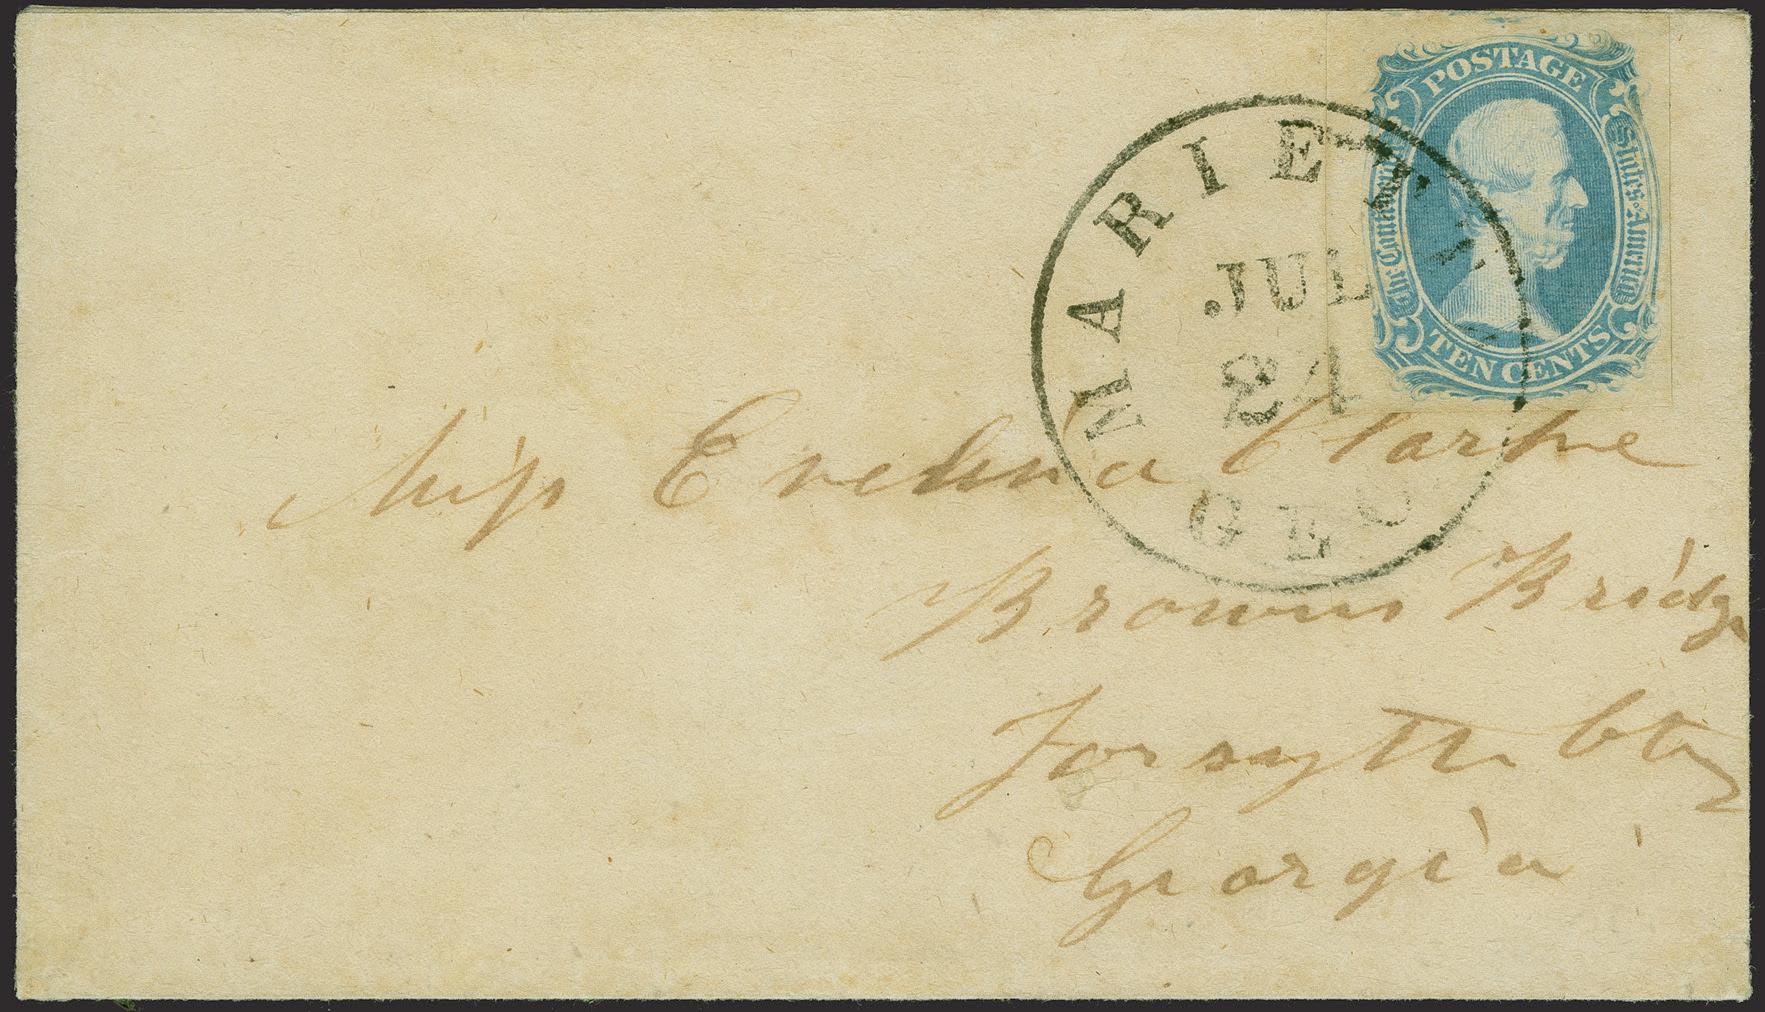 POSTAGE
The Confederate States of America
TEN CENTS
MARIETTA
JUL
24
GEO
Miss Evelina Clarke
Browns Bridge
Forsyth Cty
Georgia